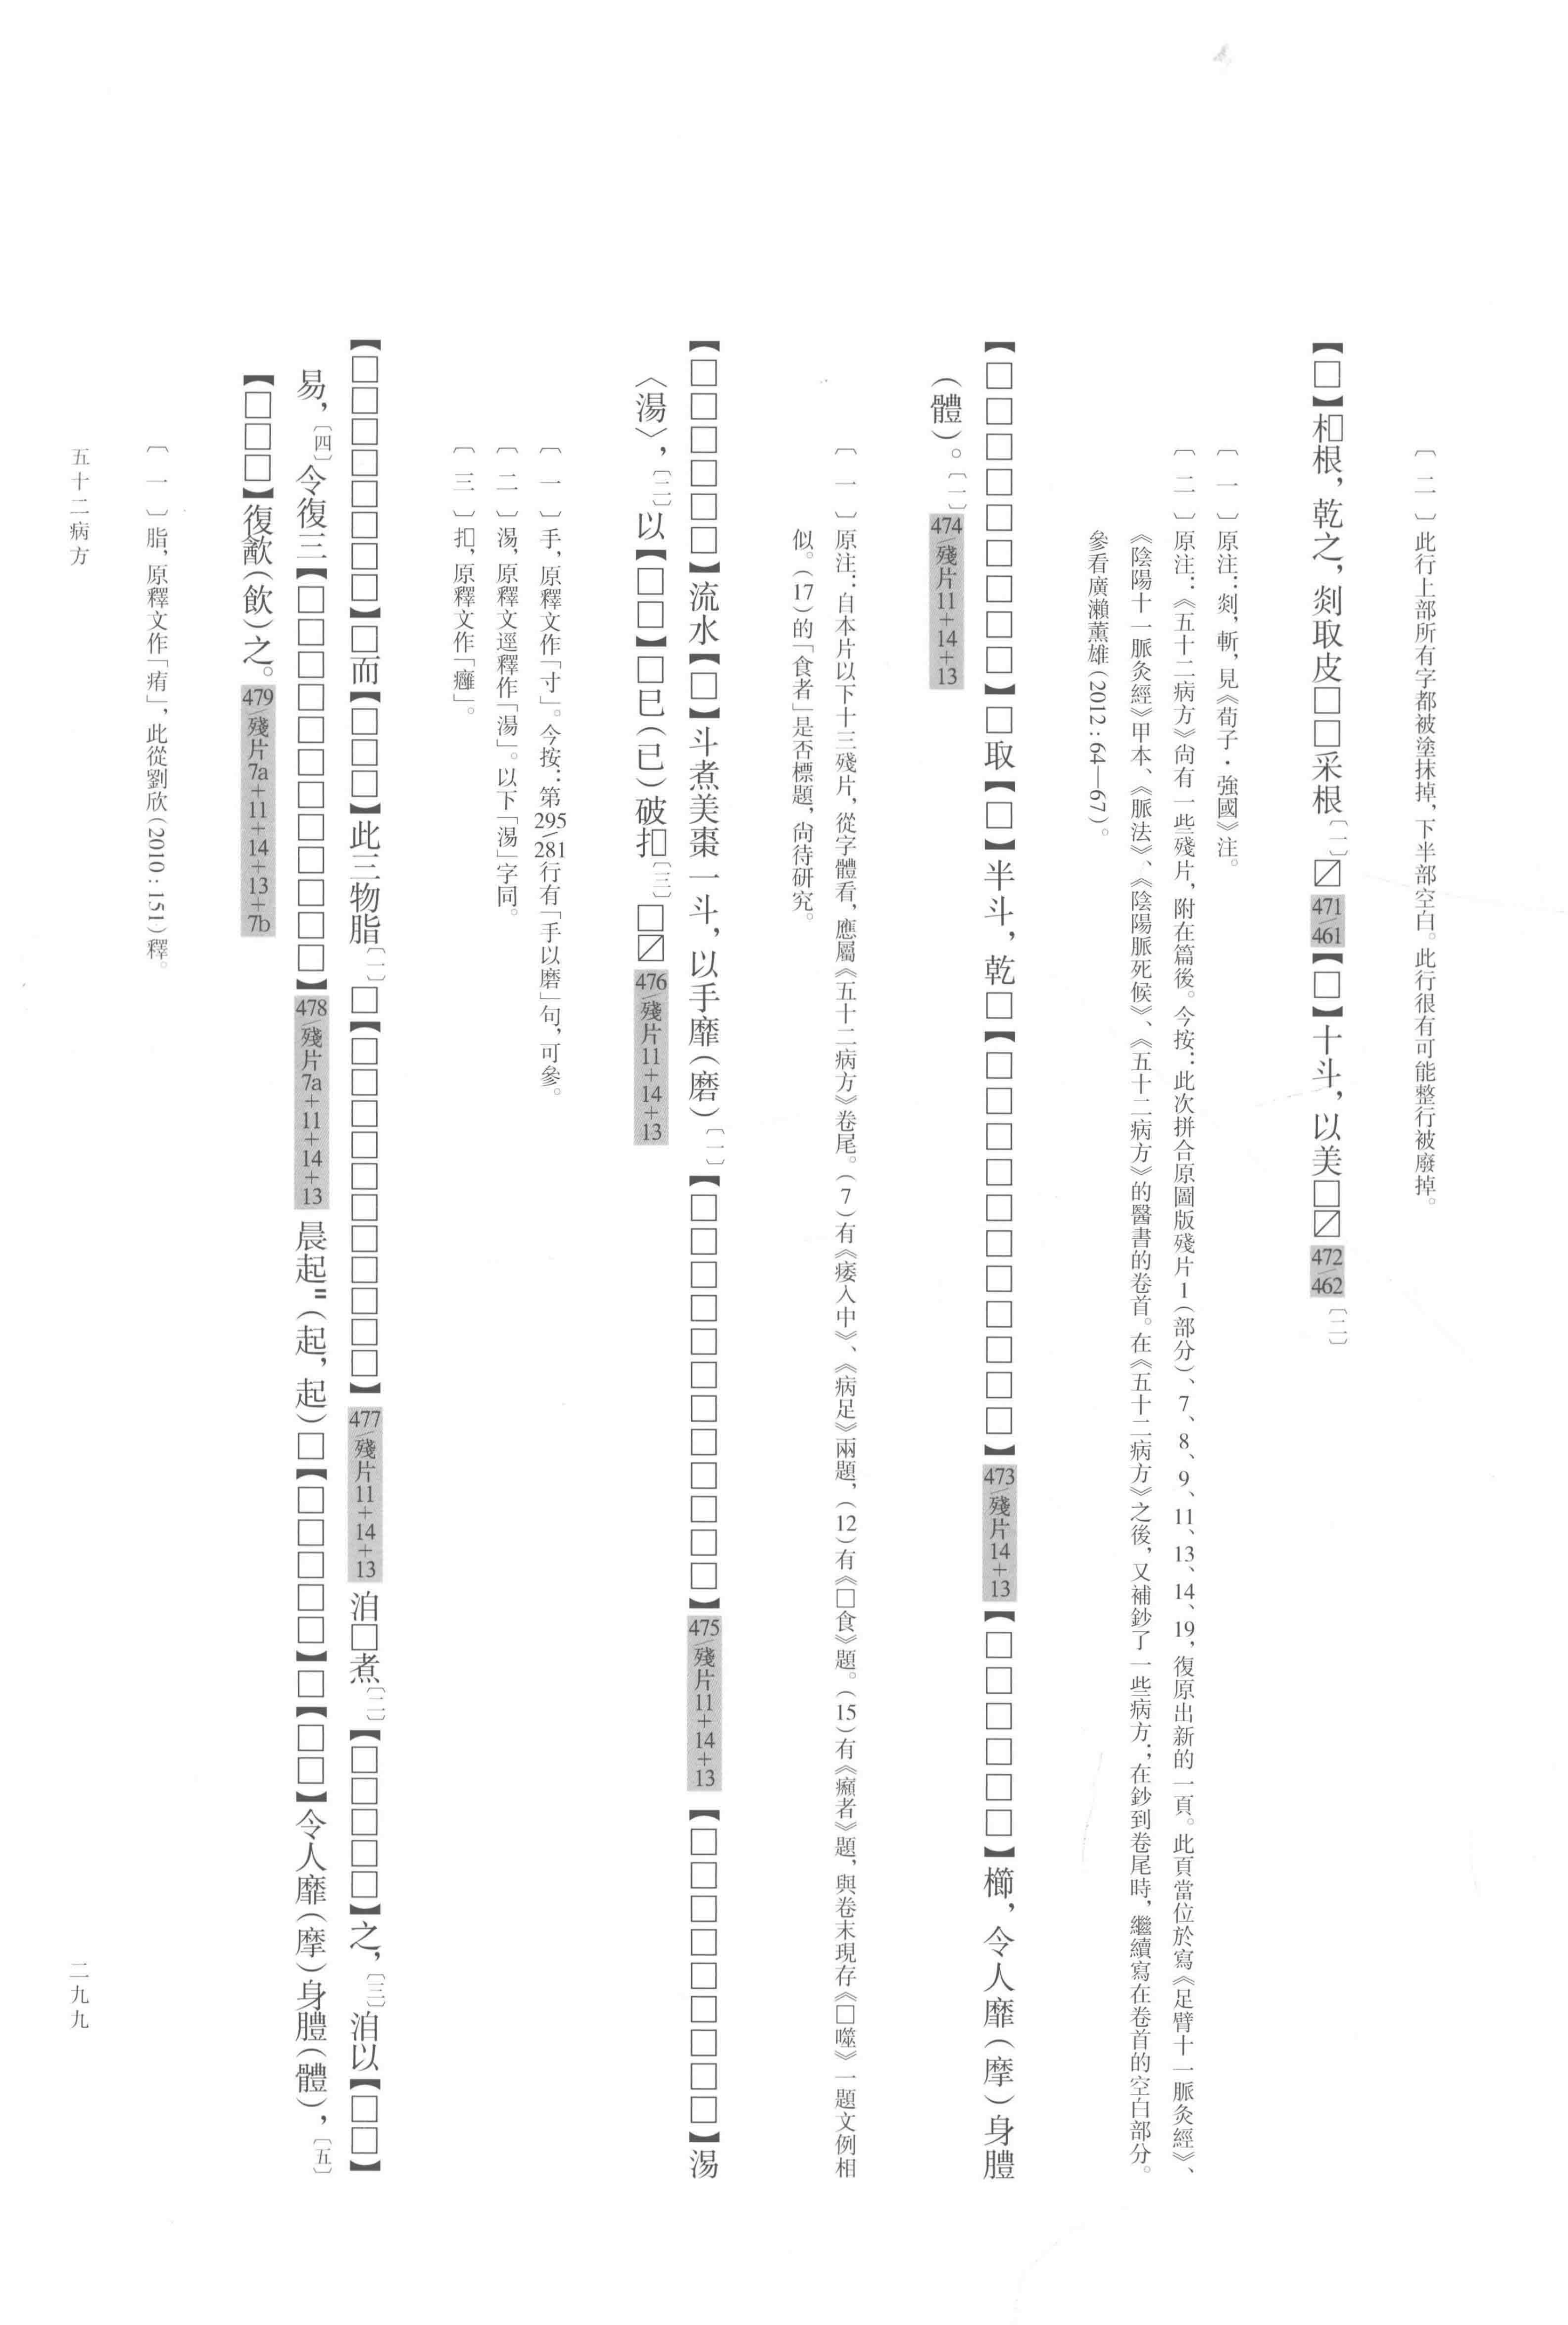 〔二〕此行上部所有字都被塗抹掉，下半部空白。此行很有可能整行被廢掉。
【□】⿰木□根，乾之，剡取皮□□采根〔一〕☑471/461【□】十斗，以美□☑472/462〔二〕
〔一〕原注：剡，斬，見《荀子·強國》注。
〔二〕原注：《五十二病方》尚有一些殘片，附在篇後。今按：此次拼合原圖版殘片1（部分）、7、8、9、11、13、14、19，復原出新的一頁。此頁當位於寫《足臂十一脈灸經》、
《陰陽十一脈灸經》甲本、《脈法》、《陰陽脈死候》、《五十二病方》的醫書的卷首。在《五十二病方》之後，又補鈔了一些病方；在鈔到卷尾時，繼續寫在卷首的空白部分。
參看廣瀨薰雄（2012：64—67）。
【□□□□□□□□□□】□取【□】半斗，乾□【□□□□□□□□□□□】473/殘片14＋13【□□□□□□】櫛，令人靡（摩）身膻
（體）。〔一〕474/殘片11＋14＋13
〔一〕原注：自本片以下十三殘片，從字體看，應屬《五十二病方》卷尾。（7）有《痿入中》、《病足》兩題，（12）有《□食》題。（15）有《癲者》題，與卷末現存《□噬》一題文例相
似。（17）的「食者」是否標題，尚待研究。
【□□□□□□】流水【□】斗煮美棗一斗，以手靡（磨）〔一〕【□□□□□□□□□□□□】475/殘片11＋14＋13【□□□□□□□□□】湯
〈湯〉，〔二〕以【□□】□巳（已）破⿰扌□〔三〕□☑476/殘片11＋14＋13
〔一〕手，原釋文作「寸」。今按：第295/281行有「手以磨」句，可參。
〔二〕湯，原釋文逕釋作「湯」。以下「湯」字同。
〔三〕⿰扌□，原釋文作「癰」。
【□□□□□□□□】□而【□□□】此三物脂〔一〕□【□□□□□□□□□□□】477/殘片11＋14＋13洎□煮〔二〕【□□□□□】之，〔三〕洎以【□□】
易，〔四〕令復三【□□□□□□□□□□□□】478/殘片7a＋11＋14＋13晨起＝（起，起）□【□□□□□】□【□□】令人靡（摩）身膻（體），〔五〕
【□□□】復㱃（飲）之。479/殘片7a＋11＋14＋13＋7b
〔一〕脂，原釋文作「痏」，此從劉欣（2010：151）釋。
五十二病方
二九九